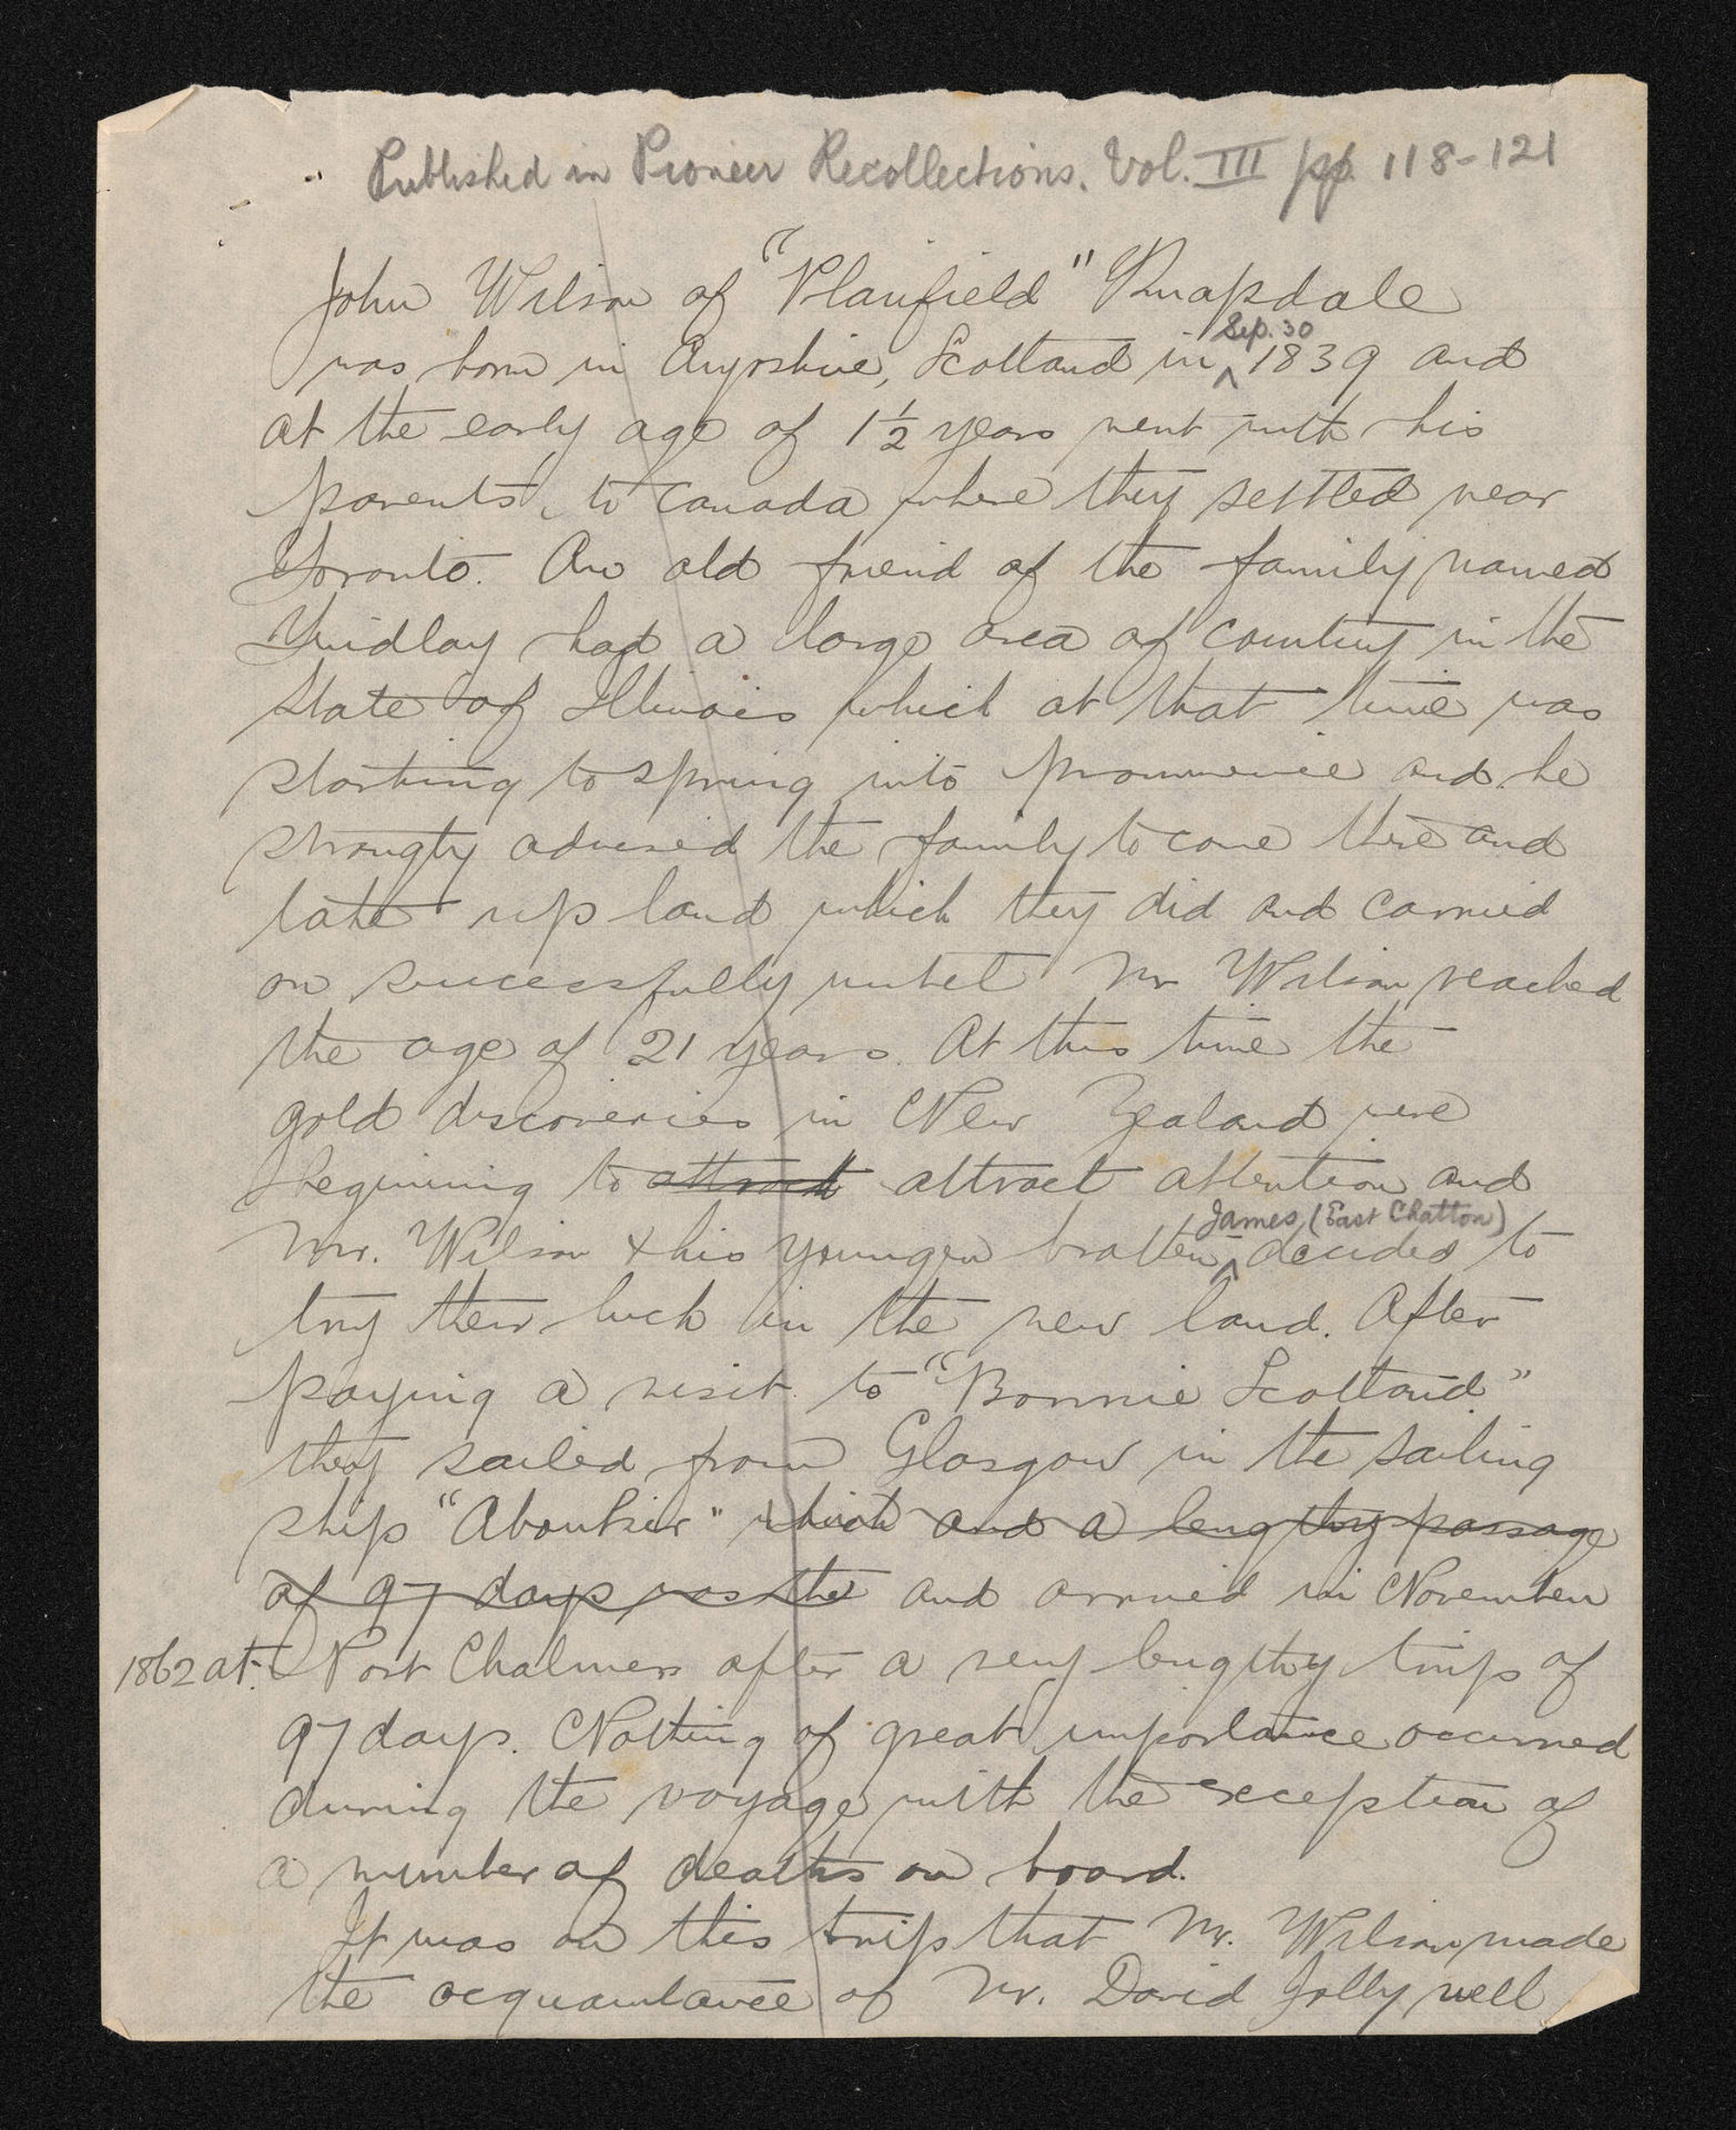 Published in Pioneer Recollections. Vol. III pp. 118-121
John Wilson of "Plainfield" Knapdale
was born in Ayrshire, Scotland in Sep. 30 1839 and
at the early age of 1½ years went with his
parents, to Canada where they settled near
Toronto. An old friend of the family named
Findlay had a large area of country in the
State of Illinois which at that time was
starting to spring into prominence and he
strongly advised the family to come there and
take up land which they did and carried
on successfully until Mr Wilson reached
the age of 21 years. At this time the
gold discoveries in New Zealand were
beginning to attract attract attention and
Mr. Wilson & his younger brother James, (East Chatton) decided to
try their luck in the new land. After
paying a visit to "Bonnie Scotland."
they sailed from Glasgow in the sailing
ship "Aboukir" which and a lengthy passage
of 97 days was the and arrived in November
1862 at Port Chalmers after a very lengthy trip of
97 days. Nothing of great importance occurred
during the voyage with the exception of
a number of deaths on board.
It was on this trip that Mr. Wilson made
the acquaintance of Mr. David Jolly well